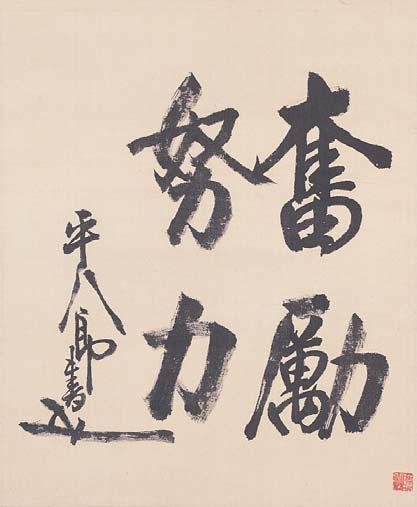 奮励
努力
平八郎書